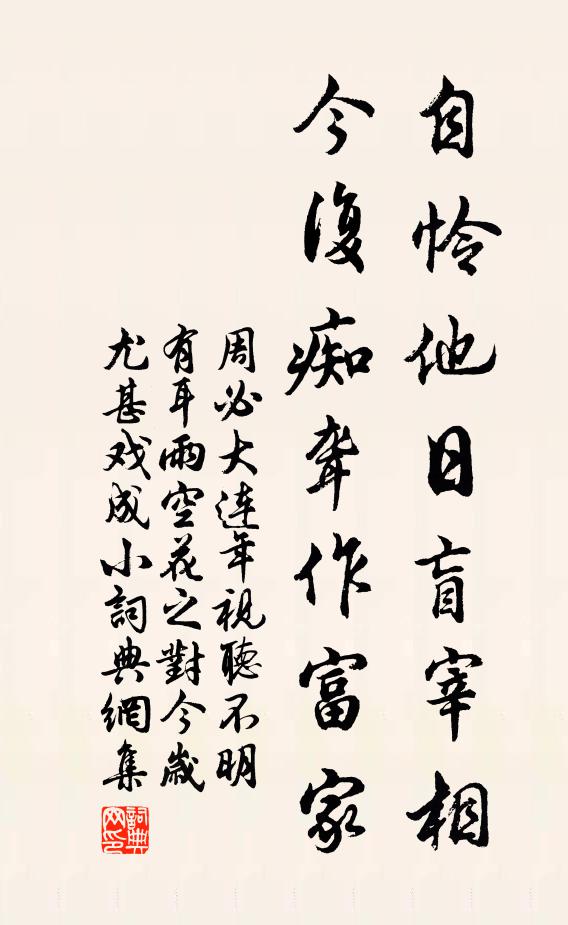 自怜他日盲宰相
今復痴聋作富家
周必大連年視聽不明
有耳雨空花之對今歲
尤甚戏成小詞典網集
詞典网印